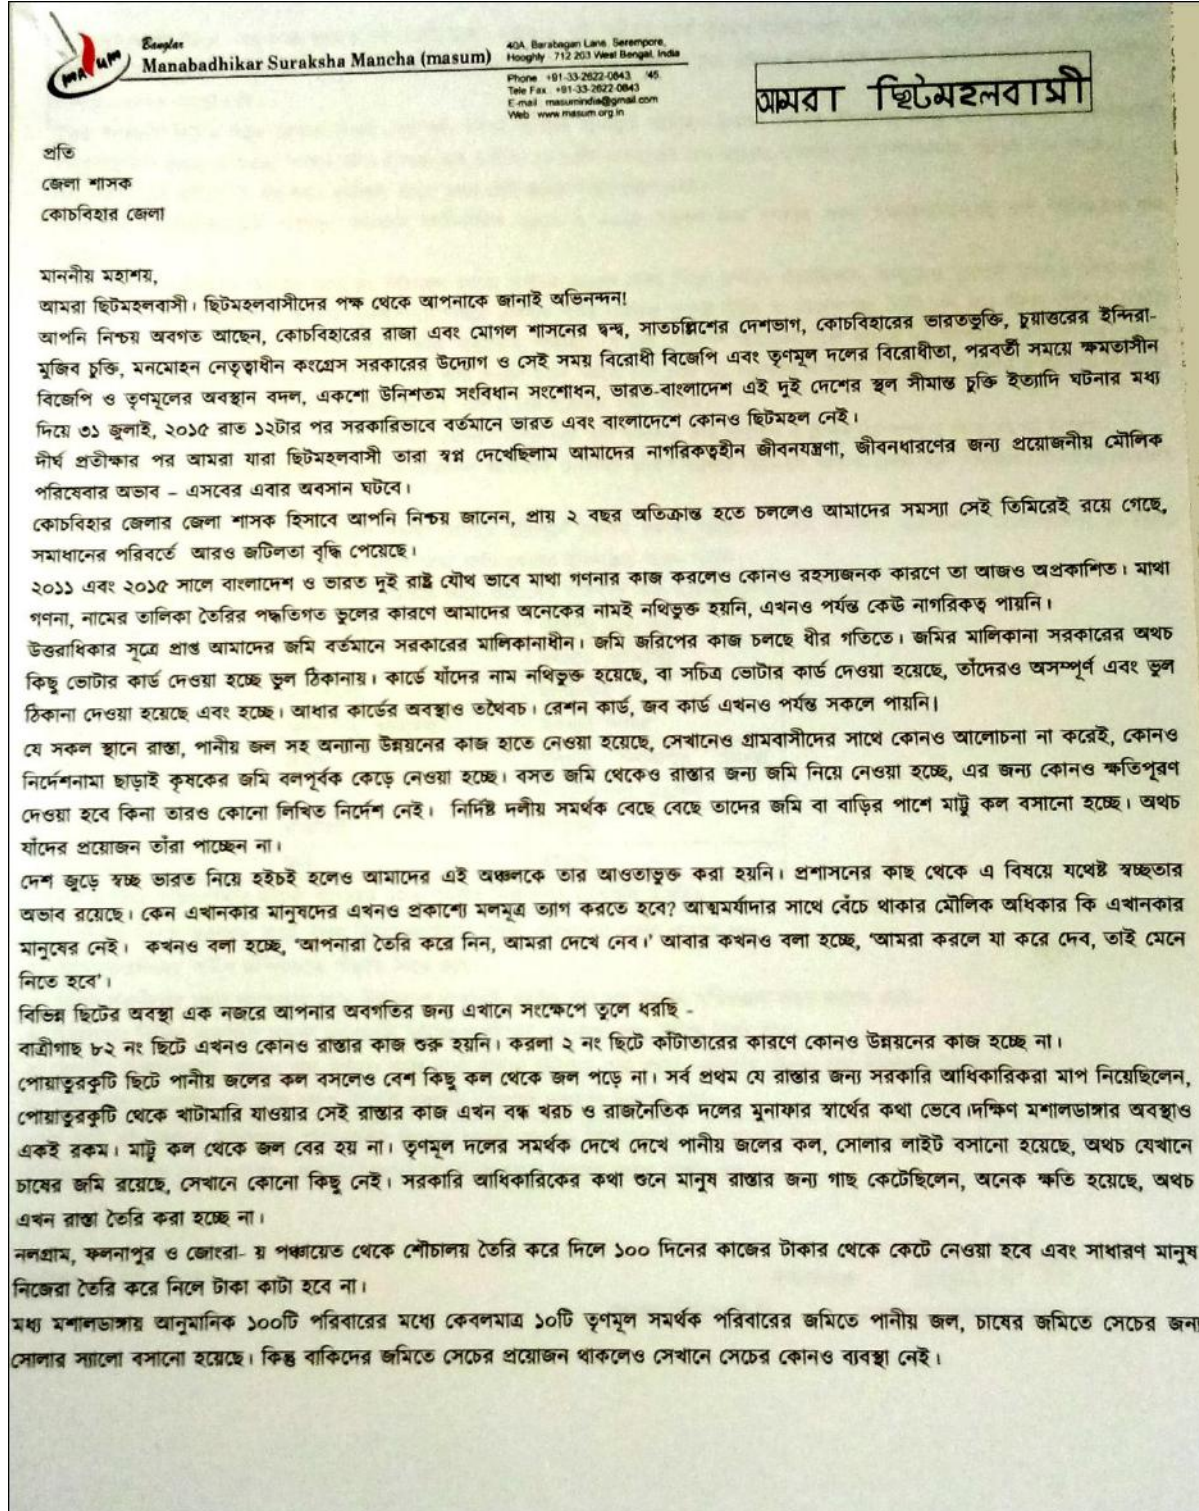 masum
Banglar
Manabadhikar Suraksha Mancha (masum)
40A, Barabagan Lane, Serempore,
Hooghly - 712 203 West Bengal, India
Phone +91-33-2622-0843 '45
Tele Fax +91-33-2622-0843
E-mail masumindia@gmail.com
Web www.masum.org.in
আমরা ছিটমহলবাসী
প্রতি
জেলা শাসক
কোচবিহার জেলা
মাননীয় মহাশয়,
আমরা ছিটমহলবাসী। ছিটমহলবাসীদের পক্ষ থেকে আপনাকে জানাই অভিনন্দন!
আপনি নিশ্চয় অবগত আছেন, কোচবিহারের রাজা এবং মোগল শাসনের দ্বন্দ্ব, সাতচল্লিশের দেশভাগ, কোচবিহারের ভারতভুক্তি, চুয়াত্তরের ইন্দিরা-
মুজিব চুক্তি, মনমোহন নেতৃত্বাধীন কংগ্রেস সরকারের উদ্যোগ ও সেই সময় বিরোধী বিজেপি এবং তৃণমূল দলের বিরোধীতা, পরবর্তী সময়ে ক্ষমতাসীন
বিজেপি ও তৃণমূলের অবস্থান বদল, একশো উনিশতম সংবিধান সংশোধন, ভারত-বাংলাদেশ এই দুই দেশের স্থল সীমান্ত চুক্তি ইত্যাদি ঘটনার মধ্য
দিয়ে ৩১ জুলাই, ২০১৫ রাত ১২টার পর সরকারিভাবে বর্তমানে ভারত এবং বাংলাদেশে কোনও ছিটমহল নেই।
দীর্ঘ প্রতীক্ষার পর আমরা যারা ছিটমহলবাসী তারা স্বপ্ন দেখেছিলাম আমাদের নাগরিকত্বহীন জীবনযন্ত্রণা, জীবনধারণের জন্য প্রয়োজনীয় মৌলিক
পরিষেবার অভাব – এসবের এবার অবসান ঘটবে।
কোচবিহার জেলার জেলা শাসক হিসাবে আপনি নিশ্চয় জানেন, প্রায় ২ বছর অতিক্রান্ত হতে চললেও আমাদের সমস্যা সেই তিমিরেই রয়ে গেছে,
সমাধানের পরিবর্তে আরও জটিলতা বৃদ্ধি পেয়েছে।
২০১১ এবং ২০১৫ সালে বাংলাদেশ ও ভারত দুই রাষ্ট্র যৌথ ভাবে মাথা গণনার কাজ করলেও কোনও রহস্যজনক কারণে তা আজও অপ্রকাশিত। মাথা
গণনা, নামের তালিকা তৈরির পদ্ধতিগত ভুলের কারণে আমাদের অনেকের নামই নথিভুক্ত হয়নি, এখনও পর্যন্ত কেউ নাগরিকত্ব পায়নি।
উত্তরাধিকার সূত্রে প্রাপ্ত আমাদের জমি বর্তমানে সরকারের মালিকানাধীন। জমি জরিপের কাজ চলছে ধীর গতিতে। জমির মালিকানা সরকারের অথচ
কিছু ভোটার কার্ড দেওয়া হচ্ছে ভুল ঠিকানায়। কার্ডে যাঁদের নাম নথিভুক্ত হয়েছে, বা সচিত্র ভোটার কার্ড দেওয়া হয়েছে, তাঁদেরও অসম্পূর্ণ এবং ভুল
ঠিকানা দেওয়া হয়েছে এবং হচ্ছে। আধার কার্ডের অবস্থাও তথৈবচ। রেশন কার্ড, জব কার্ড এখনও পর্যন্ত সকলে পায়নি।
যে সকল স্থানে রাস্তা, পানীয় জল সহ অন্যান্য উন্নয়নের কাজ হাতে নেওয়া হয়েছে, সেখানেও গ্রামবাসীদের সাথে কোনও আলোচনা না করেই, কোনও
নির্দেশনামা ছাড়াই কৃষকের জমি বলপূর্বক কেড়ে নেওয়া হচ্ছে। বসত জমি থেকেও রাস্তার জন্য জমি নিয়ে নেওয়া হচ্ছে, এর জন্য কোনও ক্ষতিপূরণ
দেওয়া হবে কিনা তারও কোনো লিখিত নির্দেশ নেই। নির্দিষ্ট দলীয় সমর্থক বেছে বেছে তাদের জমি বা বাড়ির পাশে মাট্টু কল বসানো হচ্ছে। অথচ
যাঁদের প্রয়োজন তাঁরা পাচ্ছেন না।
দেশ জুড়ে স্বচ্ছ ভারত নিয়ে হইচই হলেও আমাদের এই অঞ্চলকে তার আওতাভুক্ত করা হয়নি। প্রশাসনের কাছ থেকে এ বিষয়ে যথেষ্ট স্বচ্ছতার
অভাব রয়েছে। কেন এখানকার মানুষদের এখনও প্রকাশ্যে মলমূত্র ত্যাগ করতে হবে? আত্মমর্যাদার সাথে বেঁচে থাকার মৌলিক অধিকার কি এখানকার
মানুষের নেই। কখনও বলা হচ্ছে, ‘আপনারা তৈরি করে নিন, আমরা দেখে নেব।’ আবার কখনও বলা হচ্ছে, ‘আমরা করলে যা করে দেব, তাই মেনে
নিতে হবে’।
বিভিন্ন ছিটের অবস্থা এক নজরে আপনার অবগতির জন্য এখানে সংক্ষেপে তুলে ধরছি -
বাত্রীগাছ ৮২ নং ছিটে এখনও কোনও রাস্তার কাজ শুরু হয়নি। করলা ২ নং ছিটে কাঁটাতারের কারণে কোনও উন্নয়নের কাজ হচ্ছে না।
পোয়াতুরকুটি ছিটে পানীয় জলের কল বসলেও বেশ কিছু কল থেকে জল পড়ে না। সর্ব প্রথম যে রাস্তার জন্য সরকারি আধিকারিকরা মাপ নিয়েছিলেন,
পোয়াতুরকুটি থেকে খাটামারি যাওয়ার সেই রাস্তার কাজ এখন বন্ধ খরচ ও রাজনৈতিক দলের মুনাফার স্বার্থের কথা ভেবে।দক্ষিণ মশালডাঙ্গার অবস্থাও
একই রকম। মাট্টু কল থেকে জল বের হয় না। তৃণমূল দলের সমর্থক দেখে দেখে পানীয় জলের কল, সোলার লাইট বসানো হয়েছে, অথচ যেখানে
চাষের জমি রয়েছে, সেখানে কোনো কিছু নেই। সরকারি আধিকারিকের কথা শুনে মানুষ রাস্তার জন্য গাছ কেটেছিলেন, অনেক ক্ষতি হয়েছে, অথচ
এখন রাস্তা তৈরি করা হচ্ছে না।
নলগ্রাম, ফলনাপুর ও জোংরা- য় পঞ্চায়েত থেকে শৌচালয় তৈরি করে দিলে ১০০ দিনের কাজের টাকার থেকে কেটে নেওয়া হবে এবং সাধারণ মানুষ
নিজেরা তৈরি করে নিলে টাকা কাটা হবে না।
মধ্য মশালডাঙ্গায় আনুমানিক ১০০টি পরিবারের মধ্যে কেবলমাত্র ১০টি তৃণমূল সমর্থক পরিবারের জমিতে পানীয় জল, চাষের জমিতে সেচের জন্য
সোলার স্যালো বসানো হয়েছে। কিন্তু বাকিদের জমিতে সেচের প্রয়োজন থাকলেও সেখানে সেচের কোনও ব্যবস্থা নেই।